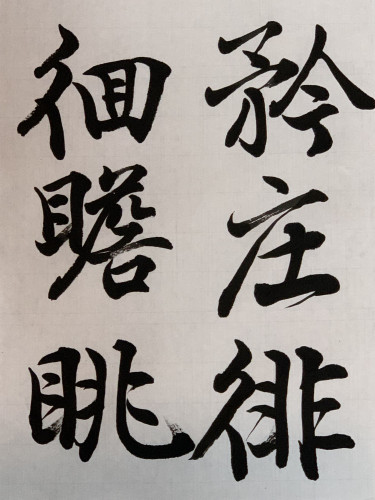 矜庄徘
徊瞻眺